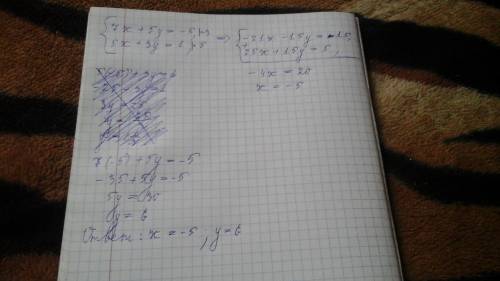 {7x + 5y = -5 |·3
{5x + 3y = 1 |·5
⇒ {-21x - 15y = 15,
{25x + 15y = 5,
-4x = 20
x = -5
7(-5) + 5y = -5
-35 + 5y = -5
5y = 30
y = 6
Ответ: x = -5, y = 6